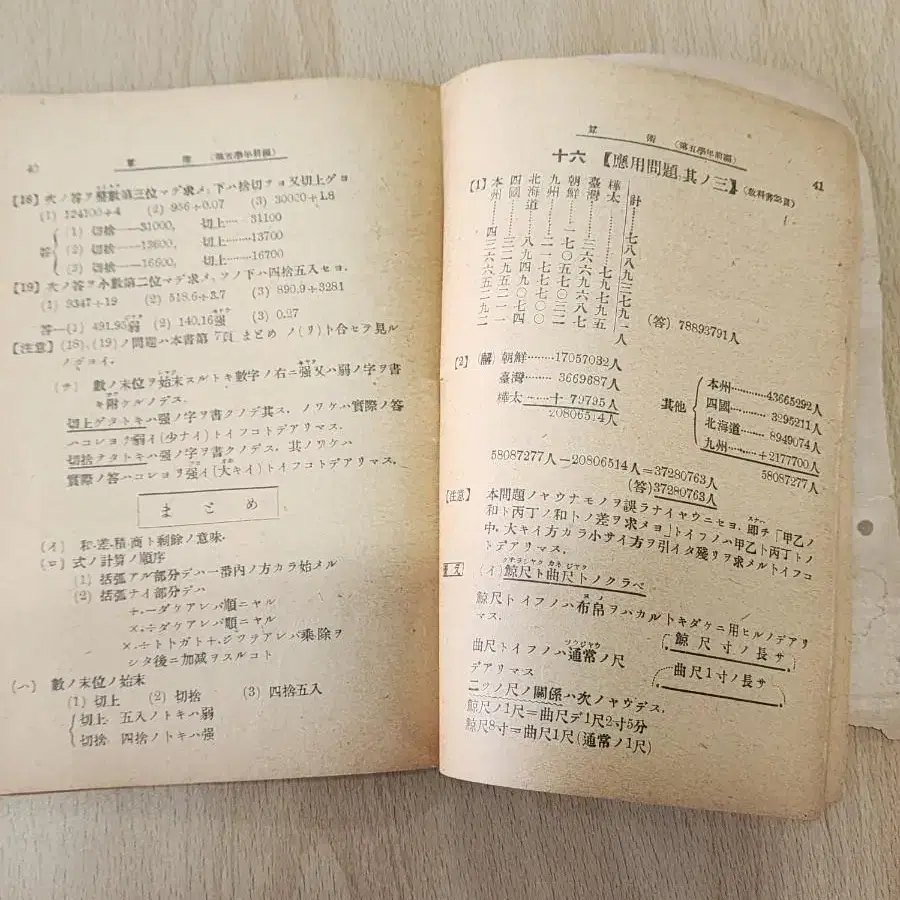 40 算術 (第五學年前編)
【18】次ノ答ヲ整數第三位マデ求メ、下ハ捨切フョ又切上ゲヨ
(1) 124100÷4 (2) 956÷0.07 (3) 30020÷1.8
答
(1) 切捨……31000, 切上……31100
(2) 切捨……13600, 切上……13700
(3) 切捨……16600, 切上……16700
【19】次ノ答ヲ小數第二位マデ求メ、ソノ下ハ四捨五入セヨ.
(1) 9347÷19 (2) 518.6÷3.7 (3) 890.9÷3281
答—(1) 491.95弱 (2) 140.16强 (3) 0.27
【注意】 (18)、(19)ノ問題ハ本書第 頁 まとめ ノ(リ)ト合セラ見ル
ノガヨイ.
(チ) 數ノ末位ヲ始末スルトキ數字ノ右ニ强又ハ弱ノ字ヲ書
キ附ケルノデス.
切上ゲタトキハ强ノ字ヲ書クノデ其ス. ノワケハ實際ノ答
ハコレヨリ弱イ(少ナイ)トイフコトデアリマス.
切捨テタトキハ强ノ字ヲ書クノデス. 其ノワケハ
實際ノ答ハコレヨリ强イ(大キイ)トイフコトデアリマス.
まとめ
(イ) 和.差.積.商ト剩餘ノ意味.
(ロ) 式ノ計算ノ順序
(1) 括弧アル部分デハ一番內ノ方カラ始メル
(2) 括弧ナイ部分デハ
+.−ダケアレバ順ニヤル
×.÷ダケアレバ順ニヤル
×.÷トトガト+.ジワヲアレバ乘.除ヲ
シタ後ニ加減ヲスルコト
(ハ) 數ノ末位ノ始末
(1) 切上 (2) 切捨 (3) 四捨五入
切上 五入ノトキハ弱
切捨 四捨ノトキハ强
算術 (第五學年前編) 41
十六 【應用問題.其ノ三】(敎科書25頁)
【1】
本州…四三六六五二九二
四國…三二九五二一一
北海道…八九四九〇七四
九州…二一七七七〇〇
朝鮮…一七〇五七〇三二
臺灣…三六六九六八七
樺太…七九七九五
計…七八八九三七九一人
(答) 78893791人
【2】 (解) 朝鮮……17057032人
臺灣…… 3669687人
樺太……+ 79795人
20806514人
其他
本州………43665292人
四國……… 3295211人
北海道…… 8949074人
九州………+2177700人
58087277人
58087277人−20806514人=37280763人
(答)37280763人
【注意】 本問題ノヤウナモノヲ誤ラナイヤウニセヨ. 卽チ「甲乙ノ
和ト丙丁ノ和トノ差ヲ求メヨ」トイフノハ甲乙ト丙丁トノ
中, 大キイ方カラ小サイ方ヲ引イタ殘リヲ求メルトイフコ
トデアリマス.
(イ) 鯨尺ト曲尺トノクラベ
鯨尺トイフノハ布帛ヲハカルトキダケニ用ヒルノデアリ
マス.
鯨尺寸ノ長サ
曲尺トイフノハ通常ノ尺
デアリマス
曲尺1寸ノ長サ
二ツノ尺ノ關係ハ次ノヤウデス.
鯨尺ノ1尺=曲尺デ1尺2寸5分
鯨尺8寸=曲尺1尺(通常ノ1尺)